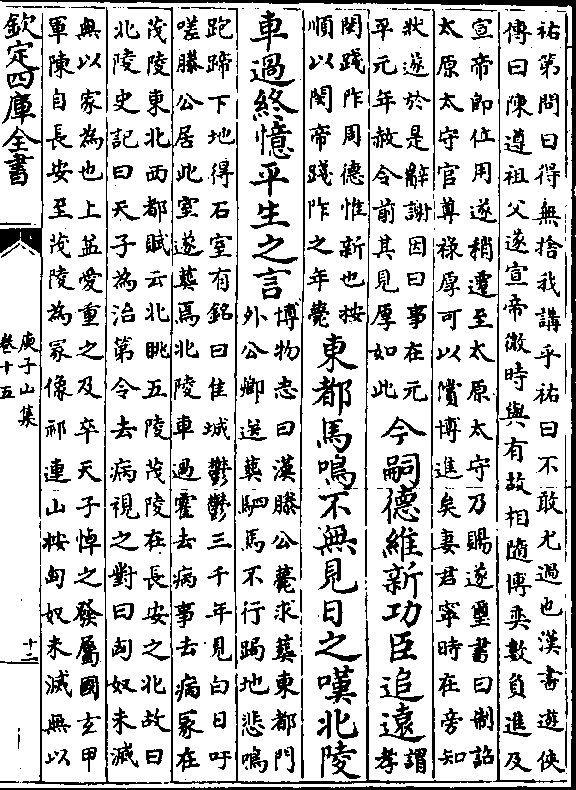 祐第問曰得無捨我講乎祐曰不敢尤過也漢書遊俠
傳曰陳遵祖父遂宣帝微時與有故相隨博奕數負進及
宣帝即位用遂稍遷至太原太守乃賜遂璽書曰制詔
太原太守官尊祿厚可以償博進矣妻君寧時在旁知
狀遂於是辭謝因曰事在元
平元年赦令前其見厚如此
今嗣德維新功臣追遠
謂孝
閔踐阼周德惟新也按
順以閔帝踐阼之年薨
東都馬鳴不無見日之嘆北陵
車過終憶平生之言
博物志曰漢滕公薨求葬東都門
外公卿送葬駟馬不行跼地悲鳴
跑蹄下地得石室有銘曰佳城鬱鬱三千年見白日吁
嗟滕公居此室遂葬焉北陵車過霍去病事去病冢在
茂陵東北西都賦云北眺五陵茂陵在長安之北故曰
北陵史記曰天子為治第令去病視之對曰匈奴未滅
無以家為也上益愛重之及卒天子悼之發屬國玄甲
軍陳自長安至茂陵為冢像祁連山按匈奴未滅無以
欽定四庫全書
庾子山集
卷十五
十二